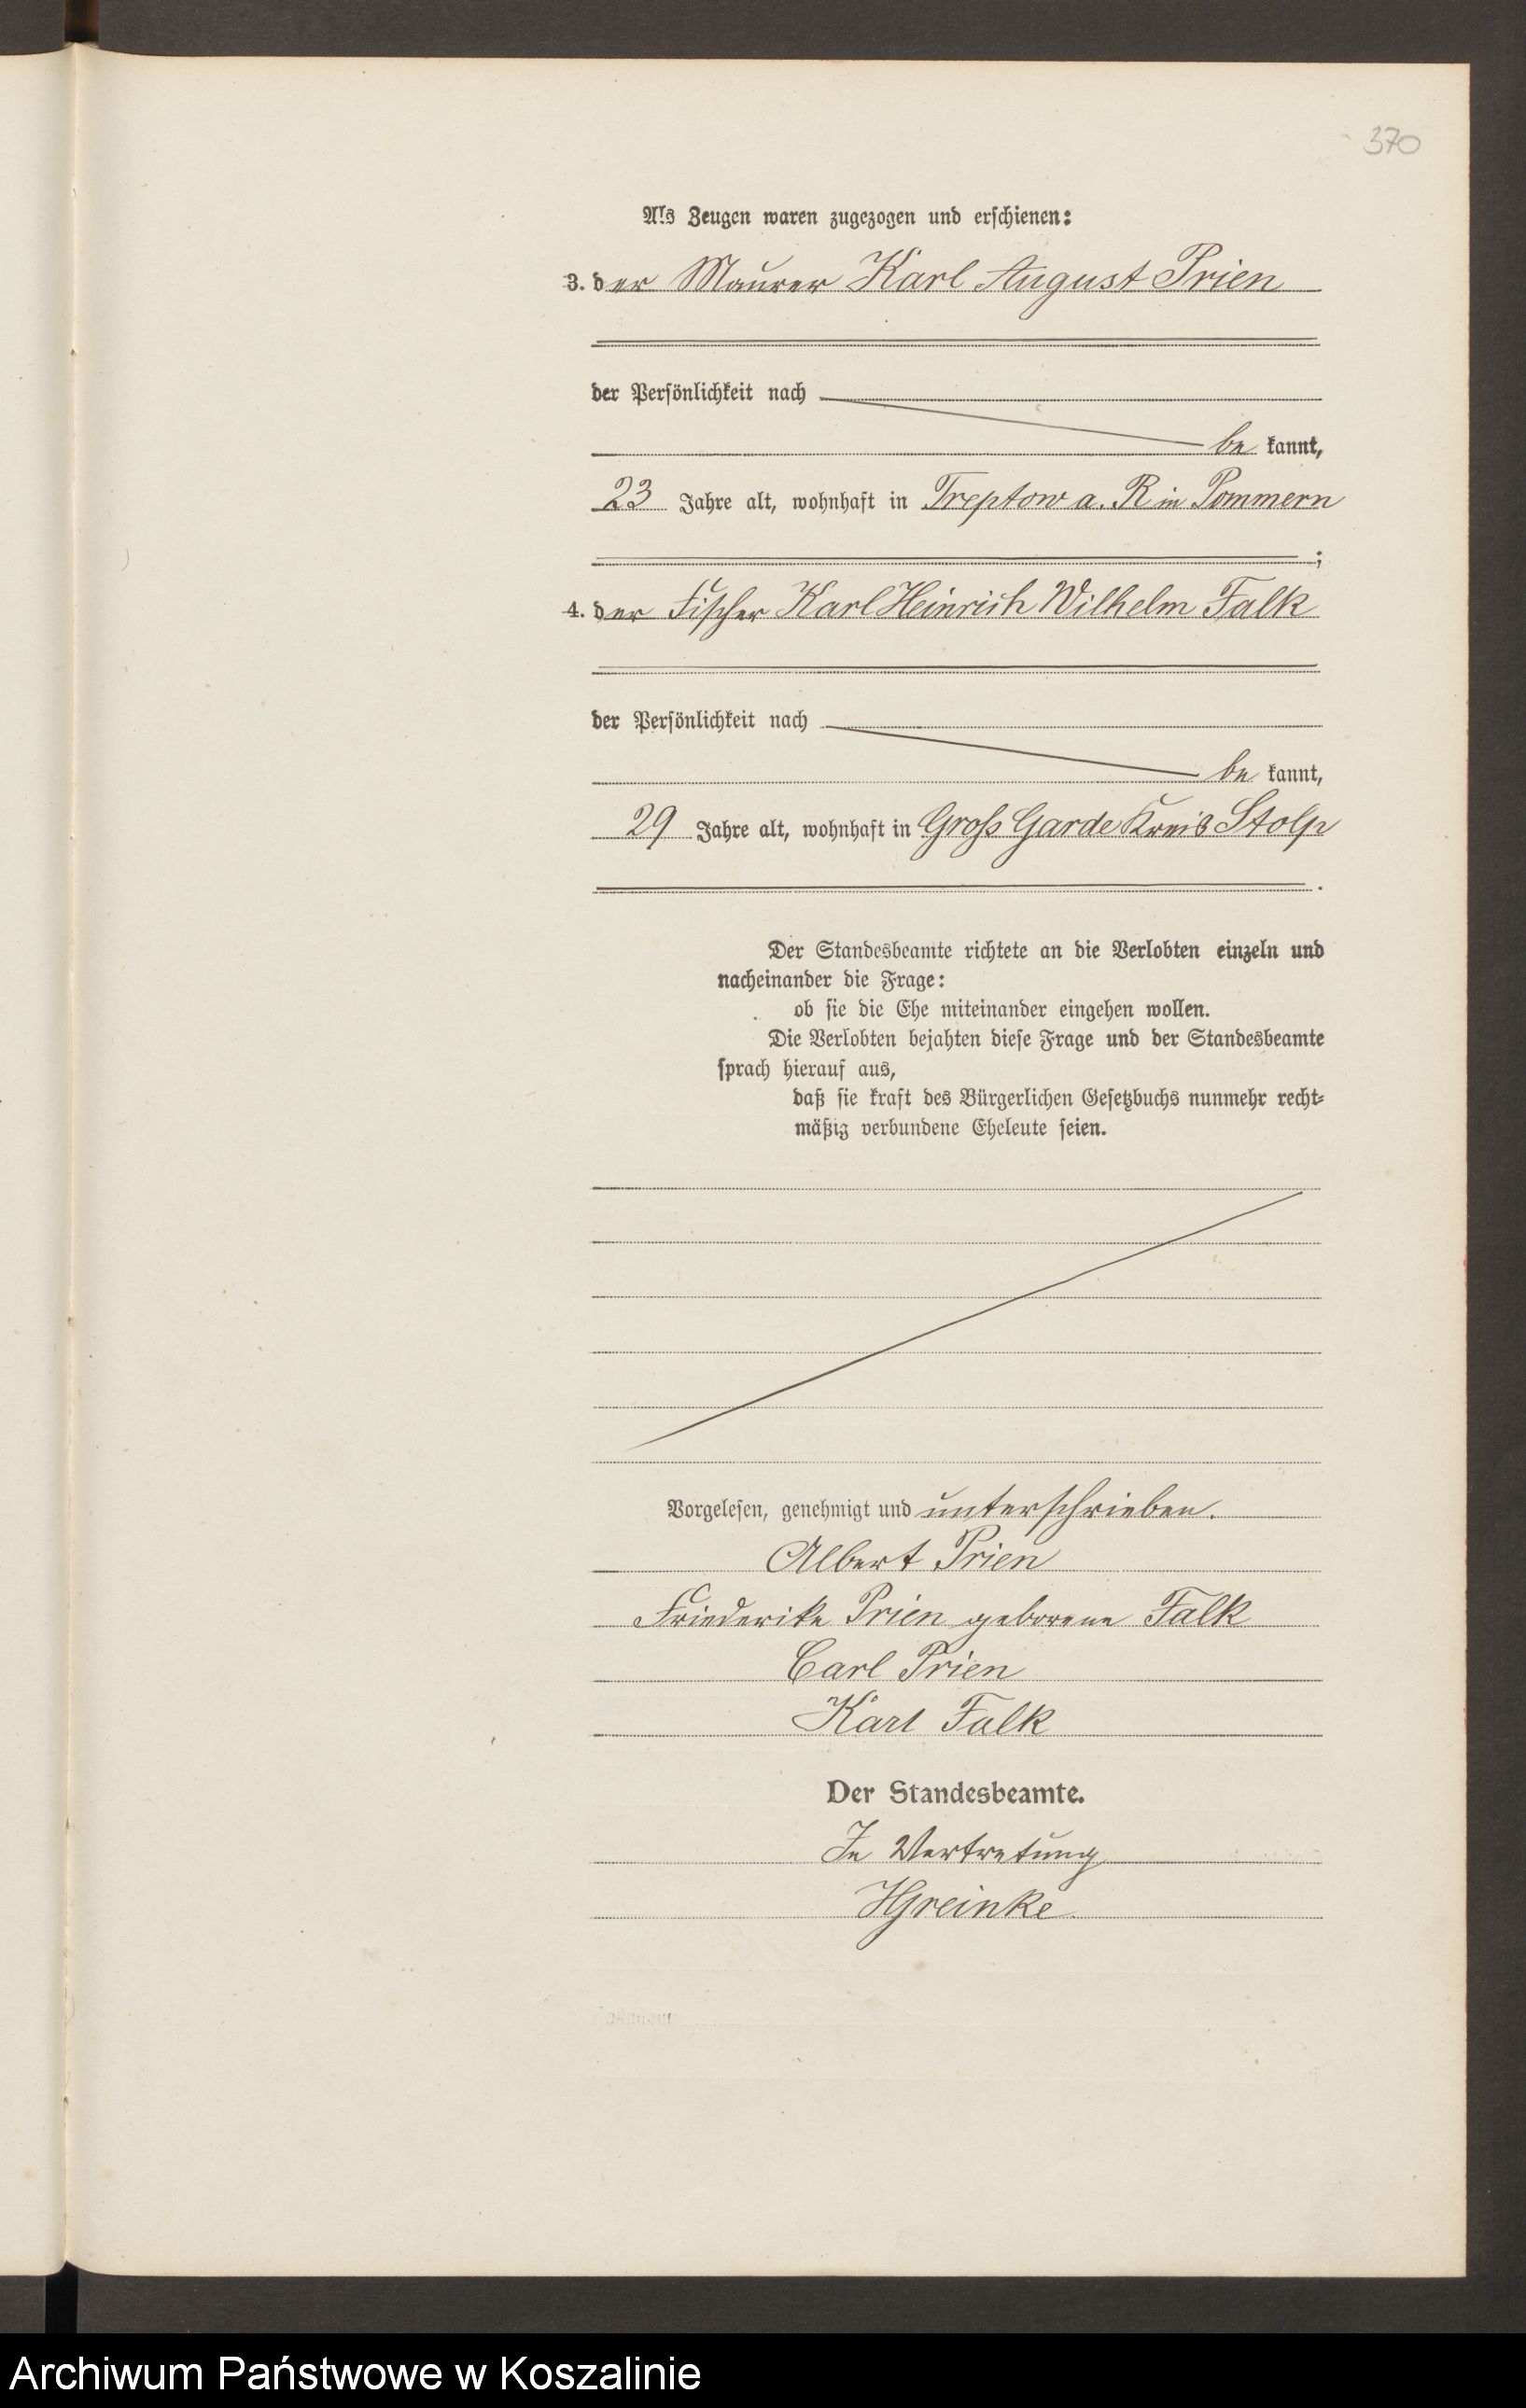 370
Als Zeugen waren zugezogen und erschienen:
3. der Maurer Karl August Prien
der Persönlichkeit nach
be kannt,
23 Jahre alt, wohnhaft in Treptow a. R in Pommern
;
4. der Fischer Karl Heinrich Wilhelm Falk
der Persönlichkeit nach
be kannt,
29 Jahre alt, wohnhaft in Groß Garde Kreis Stolp
.
Der Standesbeamte richtete an die Verlobten einzeln und
nacheinander die Frage:
ob sie die Ehe miteinander eingehen wollen.
Die Verlobten bejahten diese Frage und der Standesbeamte
sprach hierauf aus,
daß sie kraft des Bürgerlichen Gesetzbuchs nunmehr recht-
mäßig verbundene Eheleute seien.
Vorgelesen, genehmigt und unterschrieben.
Albert Prien
Friederike Prien geborene Falk
Carl Prien
Karl Falk
Der Standesbeamte.
In Vertretung
HGreinke
Archiwum Państwowe w Koszalinie